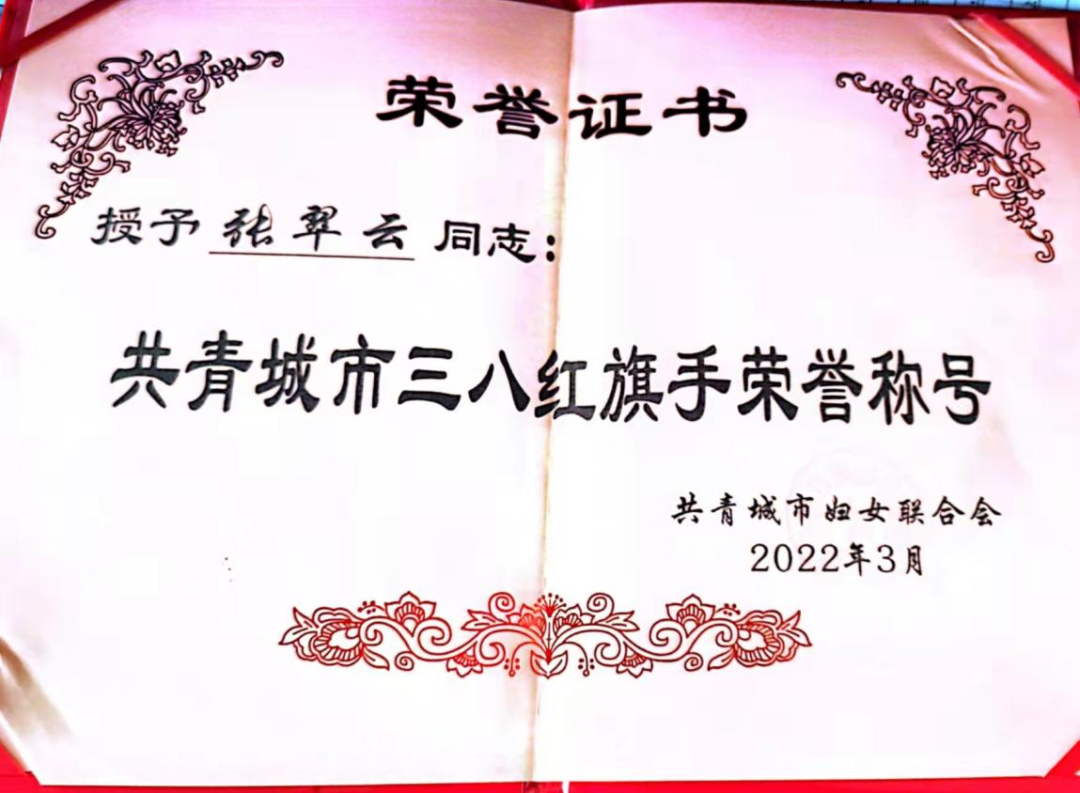 荣誉证书
授予 张翠云 同志：
共青城市三八红旗手荣誉称号
共青城市妇女联合会
2022年3月